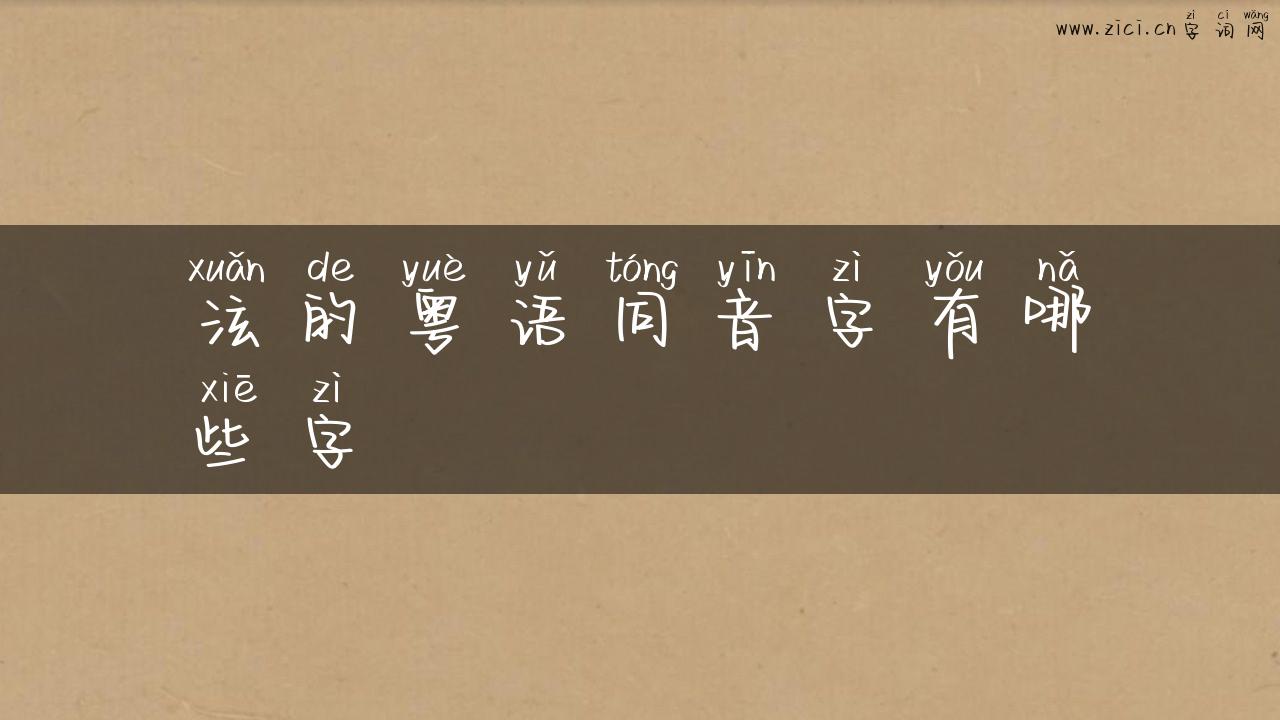 zì cí wǎng
www.zici.cn 字 词 网
xuǎn de yuè yǔ tóng yīn zì yǒu nǎ
泫 的 粤 语 同 音 字 有 哪
xiē zì
些 字